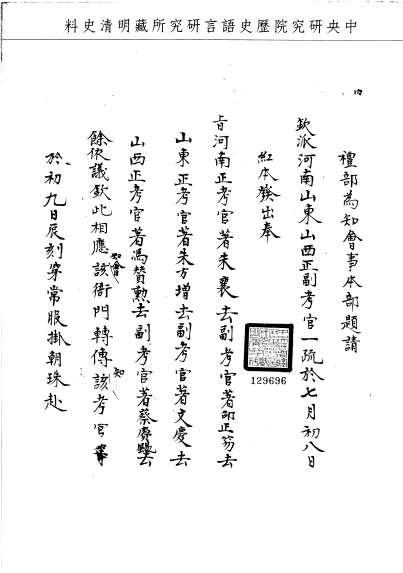 中央研究院歷史語言研究所藏明清史料
內
禮部為知會事本部題請
欽派河南山東山西正副考官一疏於七月初八日
紅本發出奉
旨河南正考官著朱襄去副考官著邵正笏去
山東正考官著朱方增去副考官著文慶去
山西正考官著馮贊勳去副考官著蔡賡颺去
餘依議欽此相應知會該衙門轉傳知該考官等
於初九日辰刻穿常服掛朝珠赴
129696